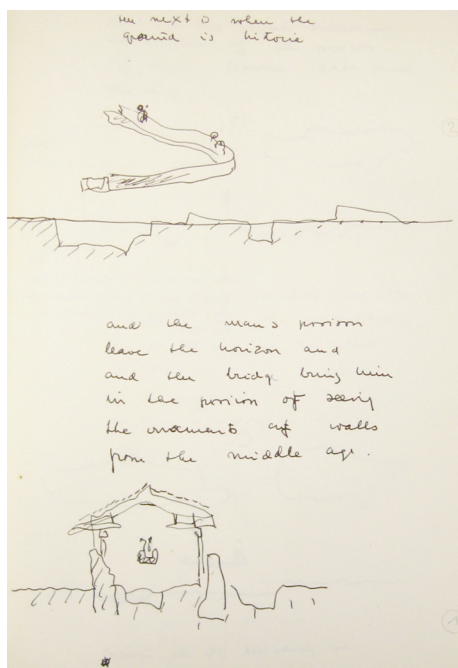 the next is when the
ground is historic
and the man's posison
leave the horizon and
and the bridge bring him
in the posison of seeing
the of walls
from the middle age.